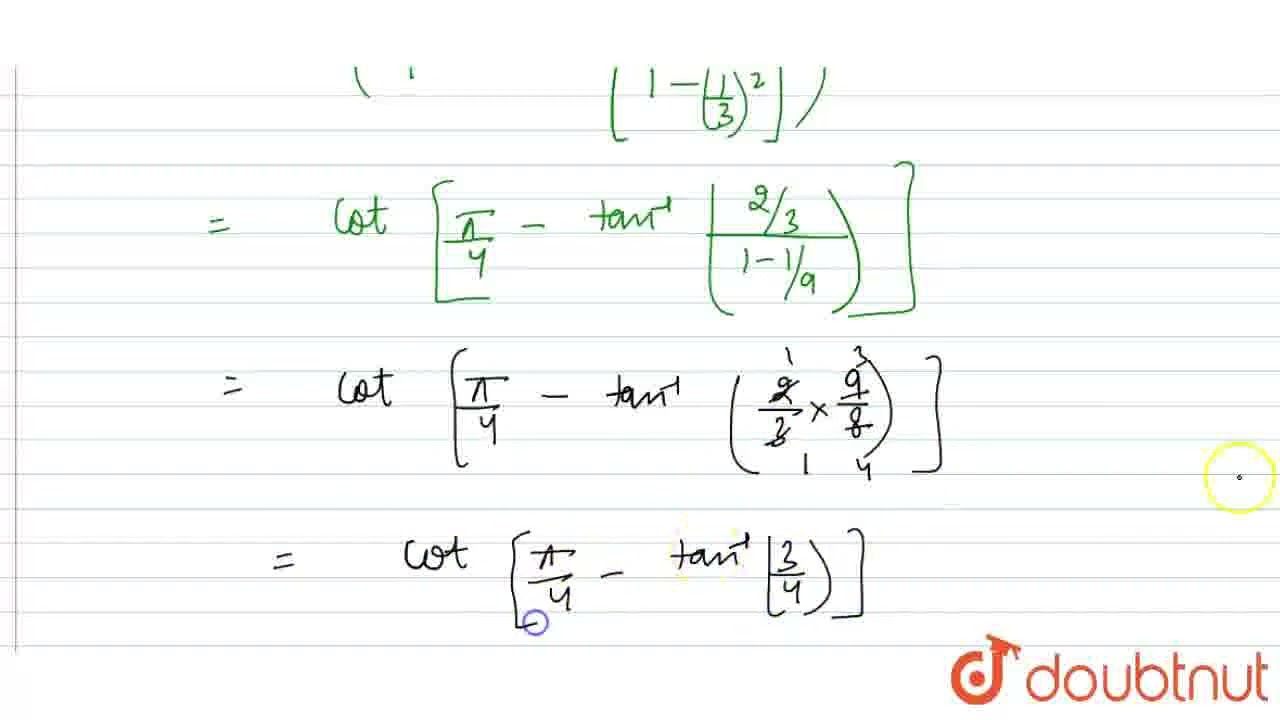 ( 1 [ 1 - (1/3)² ] )
= cot [ π/4 - tan⁻¹ ( (2/3)/(1-1/9) ) ]
= cot [ π/4 - tan⁻¹ ( 2/3 × 9/8 ) ] 1 3 1 4
= cot [ π/4 - tan⁻¹ (3/4) ]
doubtnut